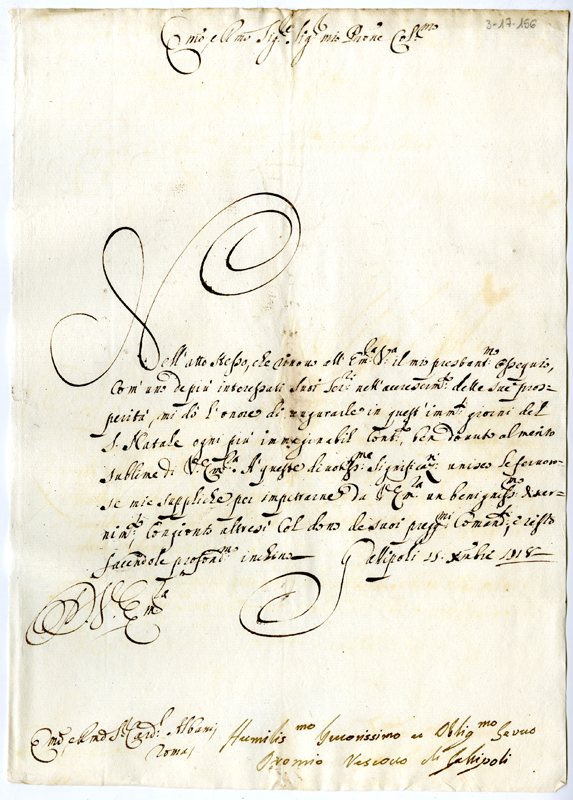 3-17-156
Em̃o, e Rmo Sig.r Sig.r mio Prone Col.mo
Nell'atto stesso, che rinovo all' Em.za V.a il mio prestant.mo ossequio,
com'uno de più interessati suoi Ser.i nell'accrescim.to delle sue pros-
perità, mi dò l'onore di augurarle in quest' imm.ti giorni del
S. Natale ogni più immaginabil cont.o ben dovuto al merito
sublime di V. Em.za A queste divotiss.me significaz.ni unisco le fervoro-
se mie suppliche per impetrarne da V. Em.za un benigniss.mo
nim.to, congionto altresì col dono de suoi preg.mi Comand.i, e resto
facendole profond.mo inchino Gallipoli 15 Xmbre 1718
D. V. Em.za
Em̃o, e Rmo S.r Card.l Albani
Roma
Humilis.mo Devotissimo et Oblig.mo Servo
Oronzio Vescovo di Gallipoli